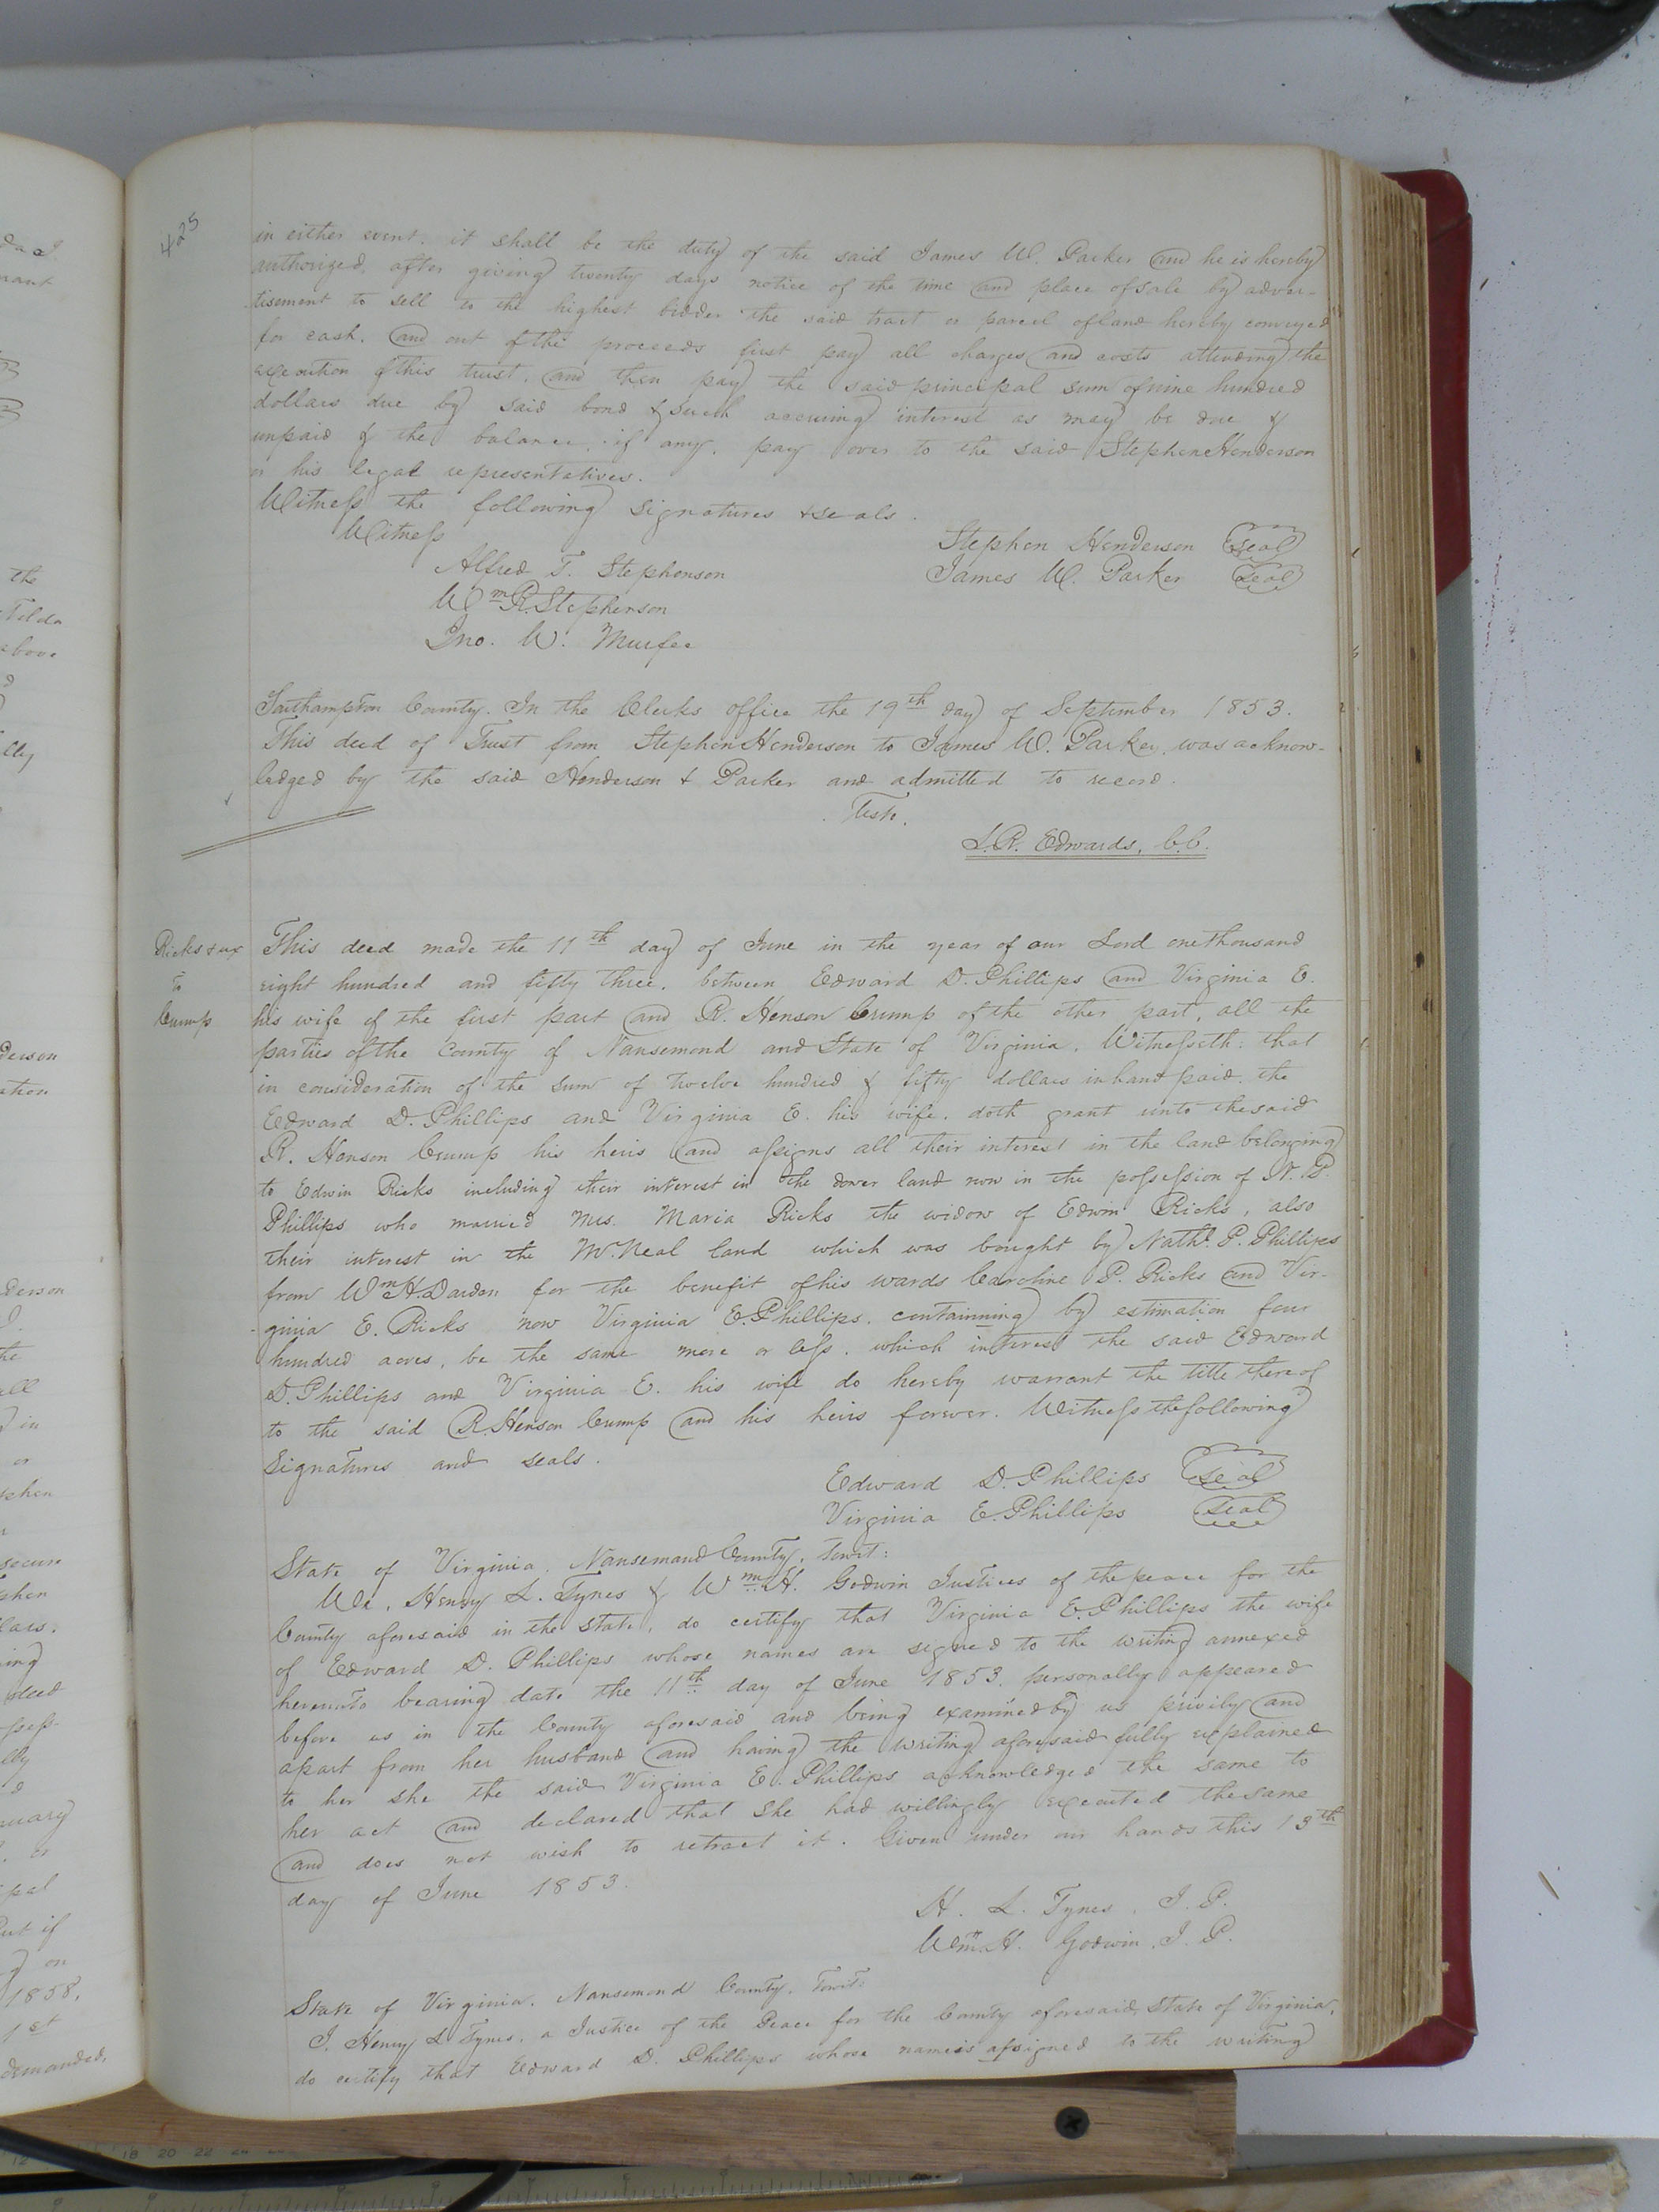 425
in either event. it shall be the duty of the said James W. Parker and he is hereby
authorized, after giving twenty days notice of the time and place of sale by adver-
tisement to sell to the highest bidder the said tract or parcel of land hereby conveyed
for cash. and out of the proceeds first pay all charges and costs attending the
execution of this trust. and then pay the said principal sum of nine hundred
dollars due by said bond & such accruing interest as may be due &
unpaid & the balance, if any, pay over to the said Stephen Henderson
or his legal representatives.
Witness the following signatures & seals.
Witness
Stephen Henderson Seal
Alfred T. Stephenson
James W. Parker Seal
Wm R. Stephenson
Jno. W. Murfee
Southampton County. In the Clerks office the 19th day of September 1853.
This deed of Trust from Stephen Henderson to James W. Parker, was acknow-
ledged by the said Henderson & Parker and admitted to record.
Teste.
L.R. Edwards, C.C.
Ricks & ux
To
Crump
This deed made the 11th day of June in the year of our Lord one thousand
eight hundred and fifty three, between Edward D. Phillips and Virginia E.
his wife of the first part and R. Henson Crump of the other part, all the
parties of the County of Nansemond and State of Virginia. Witnesseth: that
in consideration of the sum of twelve hundred & fifty dollars in hand paid. the
Edward D. Phillips and Virginia E. his wife. doth grant unto the said
R. Henson Crump his heirs and assigns all their interest in the land belonging
to Edwin Ricks including their interest in the dower land now in the possession of N. P.
Phillips who married Mrs. Maria Ricks the widow of Edwin Ricks, also
their interest in the McNeal land which was bought by Nathl. P. Phillips
from Wm H. Darden for the benefit of his wards Caroline P. Ricks and Vir-
ginia E. Ricks now Virginia E. Phillips. containning by estimation four
hundred acres, be the same more or less. which interest the said Edward
D. Phillips and Virginia E. his wife do hereby warrant the title thereof
to the said R. Henson Crump and his heirs forever. Witness the following
signatures and seals.
Edward D. Phillips Seal
Virginia E. Phillips Seal
State of Virginia, Nansemand County, Towit:
We, Henry L. Tynes & Wm H. Godwin Justices of the peace for the
County aforesaid in the State, do certify that Virginia E. Phillips the wife
of Edward D. Phillips whose names are signed to the writing annexed
hereunto bearing date the 11th day of June 1853. personally appeared
before us in the County aforesaid and being examined by us privily and
apart from her husband and having the writing aforesaid fully explained
to her she the said Virginia E. Phillips acknowledged the same to
her act and declared that she had willingly executed the same
and does not wish to retract it. Given under our hands this 13th
day of June 1853.
H. L. Tynes, J. P.
Wm H. Godwin, J. P.
State of Virginia. Nansemond County. Towit:
I. Henry L Tynes, a Justice of the Peace for the County aforesaid, State of Virginia,
do certify that Edward D. Phillips whose name is assigned to the writing